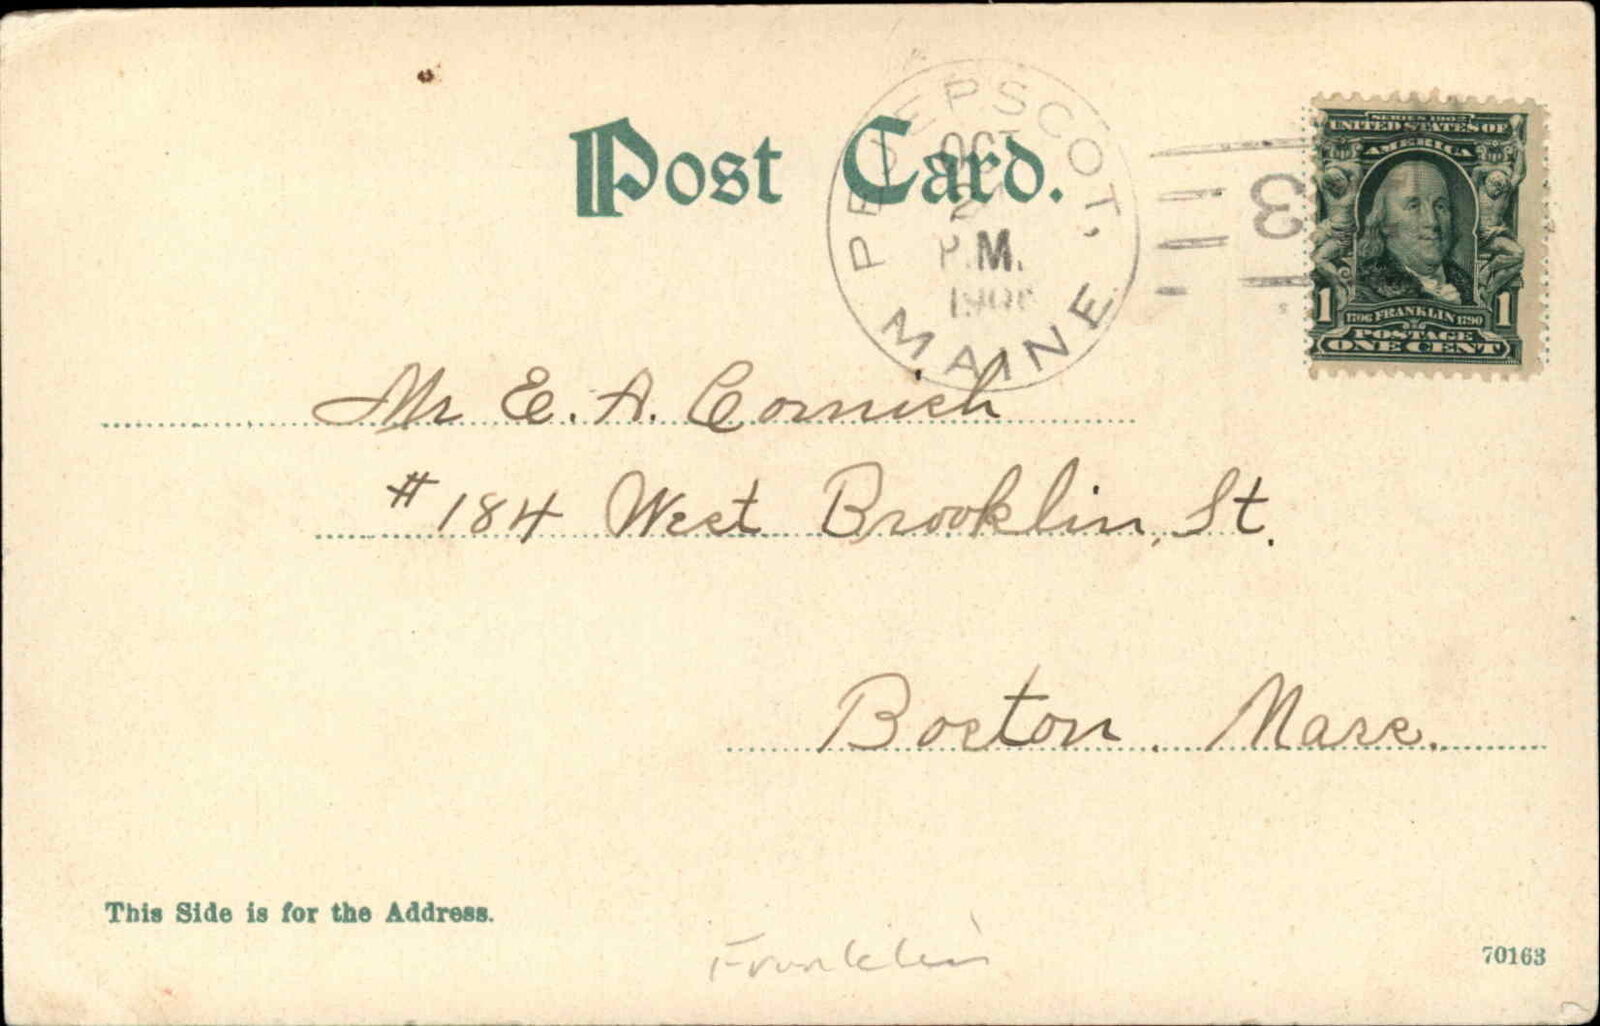 Post Card.
PEJEPSCOT,
OCT
2
P.M.
MAINE
3
SERIES 1902
UNITED STATES OF
AMERICA
1 1706 FRANKLIN 1790 1
POSTAGE
ONE CENT
Mr E. A. Cornish
#184 West Brooklin, St.
Boston. Mass.
This Side is for the Address.
Franklin
70163